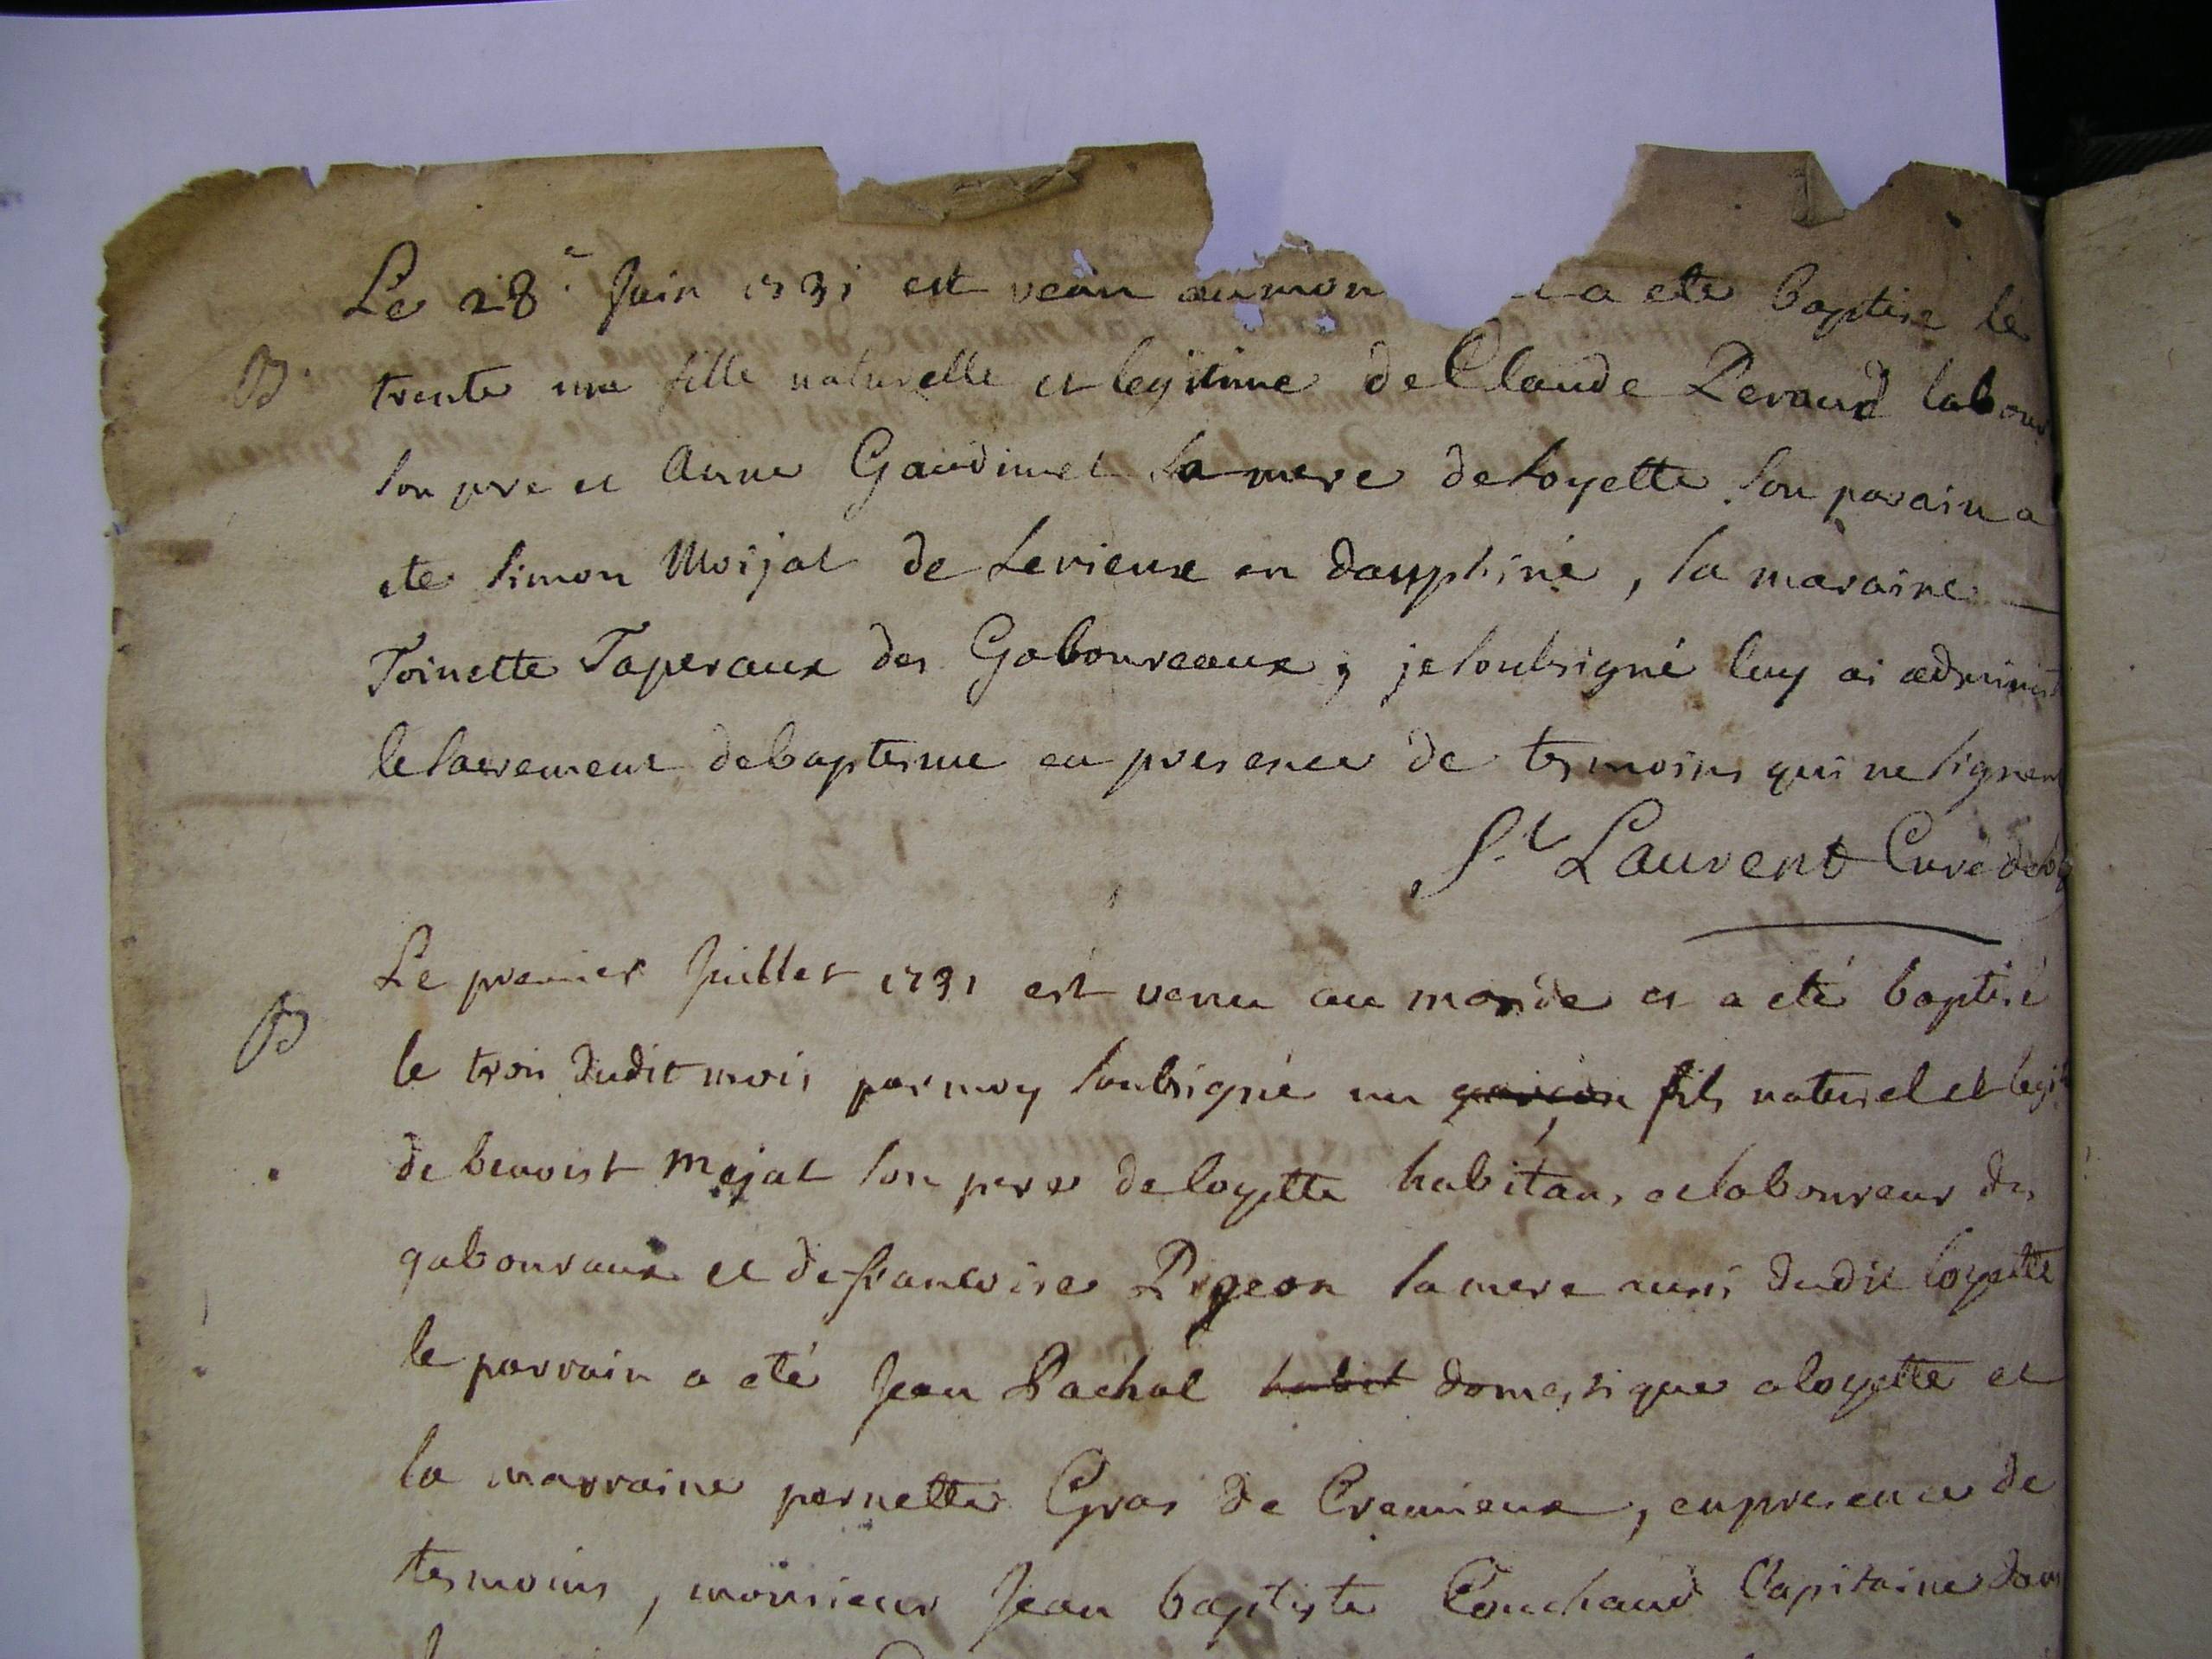 Le 28e Juin 1731 est venu au mon a ete baptise le
B. trente une fille naturelle et legitime de Claude Peraud labour
son pre et Anne Gaudimet sa mere de loyette son parain a
ete simon Moijat de Lerieux en dauphiné, sa maraine
Toinette Taperaux des Gaboureaux, je soubsigné luy ai administ
le sacrement de baptesme en presence de tesmoins qui ne signent
St Laurent Curé de loy
Le premier Juillet 1731 est venu au monde et a eté baptisé
B le trois dudit mois par moy soubsigné un garcon fils naturel et legit
de benoist mojat son pere de loyette habitans et laboureur des
gabouraux et de francoise Pigeon sa mere aussi dudit loyette
le parrain a eté Jean Pachal habit domestique a loyette et
la marraine pernette Gras de Cremieux, en presence de
tesmoins, monsieur Jean baptiste Couchaud Capitaine dans